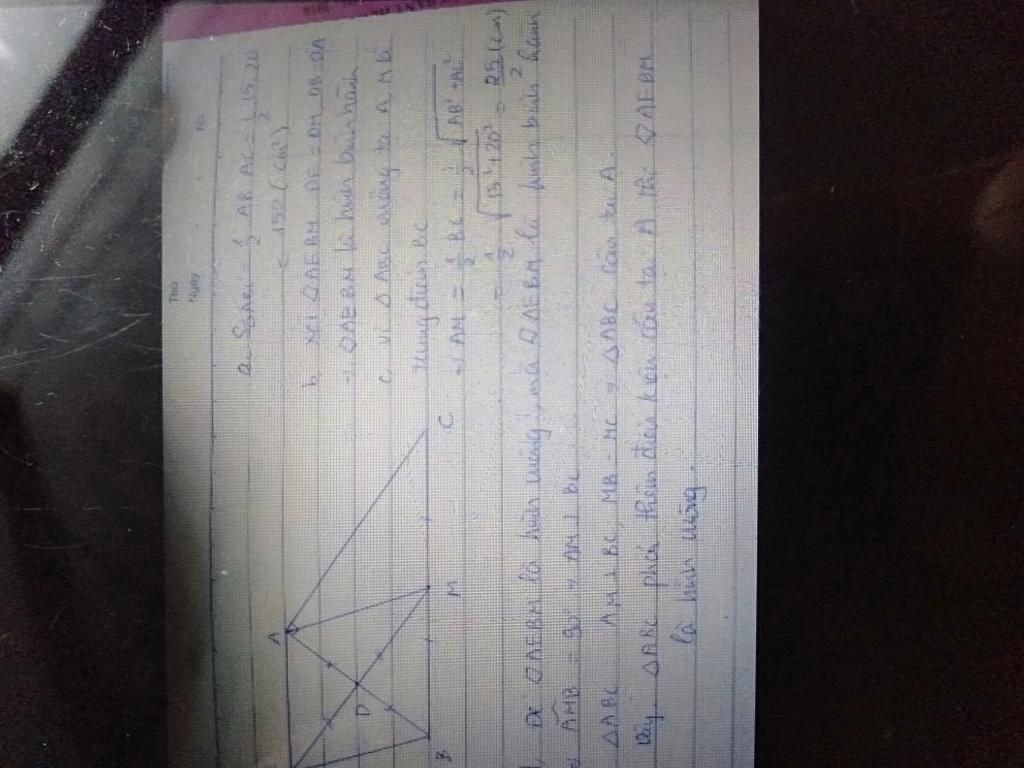 Thứ
Ngày
No
a. SABC = 1/2 AB.AC = 1/2 15.20
= 150 (cm²)
b Xét ◇AEBM DE = DM, DB = DA
→ ◇AEBM là hình bình hành
c vì △ABC vuông tại A, M là
trung điểm BC
→ AM = 1/2 BC = 1/2 √AB² + AC²
= 1/2 √15² + 20² = 25/2 (cm)
Để ◇AEBM là hình vuông, mà ◇AEBM là hình bình hành
AMB = 90° → AM ⊥ BC
△ABC AM ⊥ BC, MB = MC → △ABC cân tại A.
Vậy △ABC phải thêm điều kiện cân tại A thì ◇AEBM
là hình vuông.
A
D
B
M
C